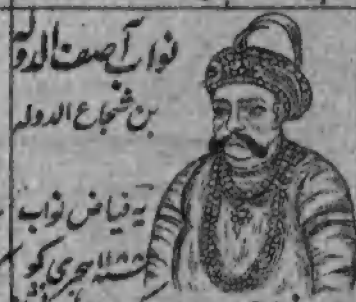 نواب آصف الدولہ
بن شجاع الدولہ
یہ فیاض نواب
ہجری کو